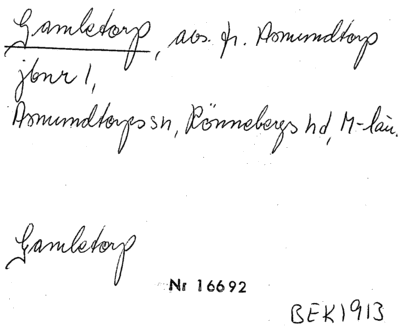 Gamletorp, avs. fr. Asmundtorp
jbnr 1,
Asmundtorps sn, Rönnebergs hd, M-län.
Gamletorp
Nr 16692
BEK1913